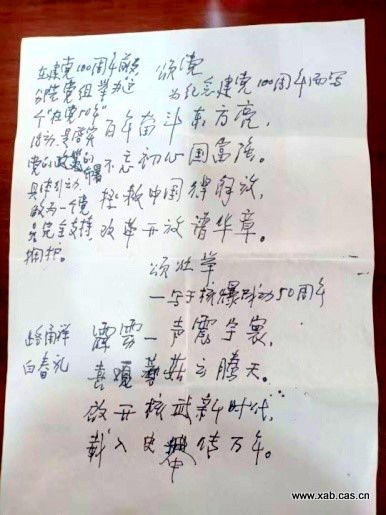 颂党
为纪念建党100周年而写
百年奋斗东方亮,
不忘初心国富强。
拯救中国得解放,
改革开放谱华章。
颂壮举
—写于核爆成功50周年
霹雳一声震宇寰,
喜观蘑菇云腾天。
启开核武新时代,
载入史册传万年。
在建党100周年前夕
分院党组举办这
个“在党50年”
活动,是落实
党的政策的
具体行动,
做为一个党
员完全支持
拥护。
白春礼
www.xab.cas.cn